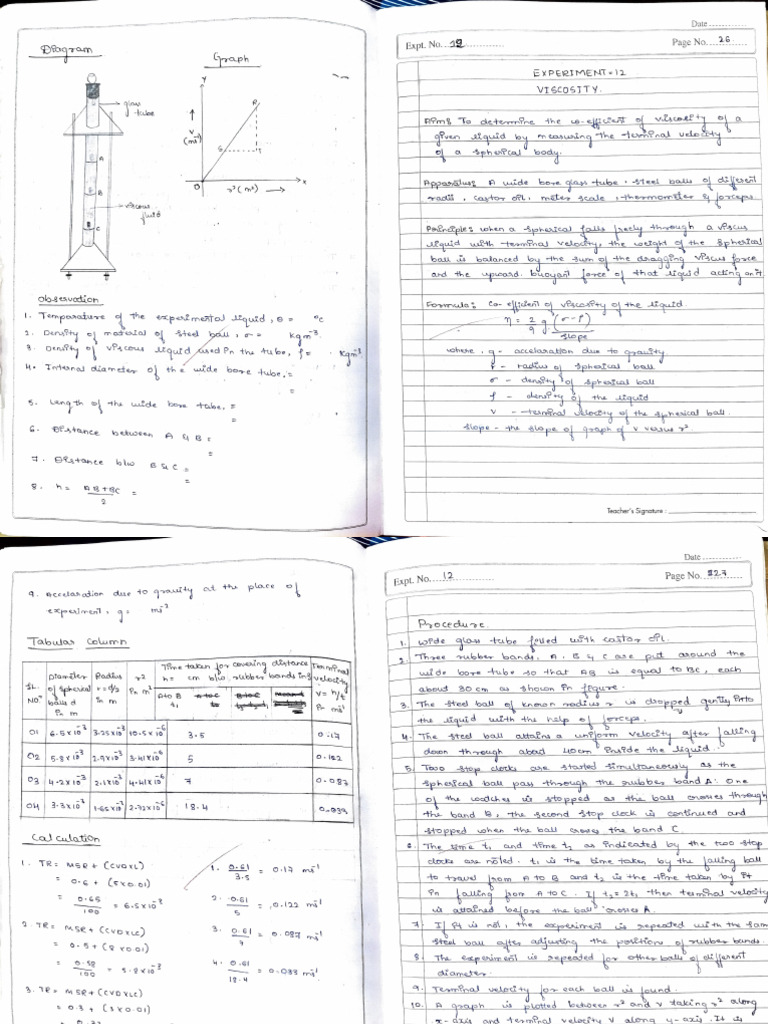 Diagram
Graph
glass
tube
A
B
viscous
fluid
C
y
v
(ms⁻¹)
P
Q
O
x
r² (m²)
Observation
1. Temparature of the experimental liquid, θ = °c
2. Density of material of steel ball, σ = kgm⁻³
3. Density of viscous liquid used in the tube, ρ = kgm⁻³
4. Internal diameter of the wide bore tube, =
=
5. Length of the wide bore tube, =
=
6. Distance between A & B =
=
7. Distance b/w B & C =
=
8. h = AB+BC / 2 =
Date
Expt. No. 12
Page No. 26
EXPERIMENT-12
VISCOSITY.
Aim: To determine the co-efficient of viscosity of a
given liquid by measuring the terminal velocity
of a spherical body.
Apparatus: A wide bore glass tube, steel balls of different
radii, castor oil, meter scale, thermometer & forceps.
Principle: when a spherical falls freely through a viscus
liquid with terminal velocity, the weight of the spherical
ball is balanced by the sum of the dragging viscus force
and the upward buoyant force of that liquid acting on it
Formula: Co-efficient of viscosity of the liquid.
η = 2/9 g (σ-ρ)/slope
where, g - accelaration due to gravity
r - radius of spherical ball
σ - density of spherical ball
ρ - density of the liquid
v - terminal velocity of the spherical ball.
slope - the slope of graph of v versus r².
Teacher's Signature :
9. Accelaration due to gravity at the place of
experiment, g = ms⁻²
Tabular Column
SL. NO. Diameter of spherical balls d in m Radius r = d/2 in m r² in m² Time taken for covering distance h = cm b/w, rubber bands in s A to B t₁ Terminal velocity v = h/t in ms⁻¹
01 6.5×10⁻³ 3.25×10⁻³ 10.5×10⁻⁶ 3.5 0.17
02 5.8×10⁻³ 2.9×10⁻³ 8.41×10⁻⁶ 5 0.122
03 4.2×10⁻³ 2.1×10⁻³ 4.41×10⁻⁶ 7 0.087
04 3.3×10⁻³ 1.65×10⁻³ 2.72×10⁻⁶ 18.4 0.033
Calculation
1. TR = MSR + (CVD×LC)
= 0.6 + (5×0.01)
= 0.65/100 = 6.5×10⁻³
2. TR = MSR + (CVD×LC)
= 0.5 + (8×0.01)
= 0.58/100 = 5.8×10⁻³
3. TR = MSR + (CVD×LC)
= 0.3 + (3×0.01)
1. 0.61/3.5 = 0.17 ms⁻¹
2. 0.61/5 = 0.122 ms⁻¹
3. 0.61/7 = 0.087 ms⁻¹
4. 0.61/18.4 = 0.033 ms⁻¹
Date
Expt. No. 12
Page No. 27
Procedure
1. wide glass tube filled with castor oil.
2. Three rubber bands, A, B & C are put around the
wide bore tube so that AB is equal to BC, each
about 30 cm as shown in figure.
3. The steel ball of known radius r is dropped gently into
the liquid with the help of forceps.
4. The steel ball attains a uniform velocity after falling
down through about 40cm inside the liquid.
5. Two stop clocks are started simultaneously as the
spherical ball pass through the rubber band A. One
of the watches is stopped as the ball crosses through
the band B, the second stop clock is continued and
stopped when the ball crosses the band C.
6. The time t₁ and time t₂ as indicated by the two stop
clocks are noted. t₁ is the time taken by the falling ball
to travel from A to B and t₂ is the time taken by it
in falling from A to C. If t₂ = 2t₁ then terminal velocity
is attained before the ball crosses A.
7. If it is not, the experiment is repeated with the same
steel ball after adjusting the position of rubber bands.
8. The experiment is repeated for other balls of different
diameter.
9. Terminal velocity for each ball is found.
10. A graph is plotted between r² and v taking r² along
x-axis and terminal velocity v along y-axis. It is